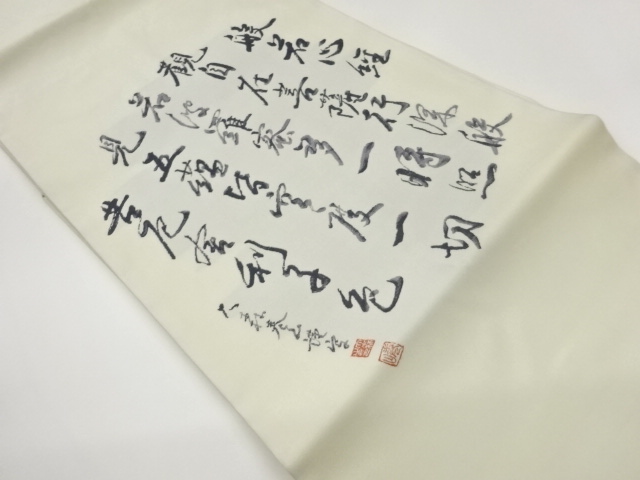 般若心経
觀自在菩薩行深般
若波羅蜜多時照
見五蘊皆空度一切
苦厄舎利子色